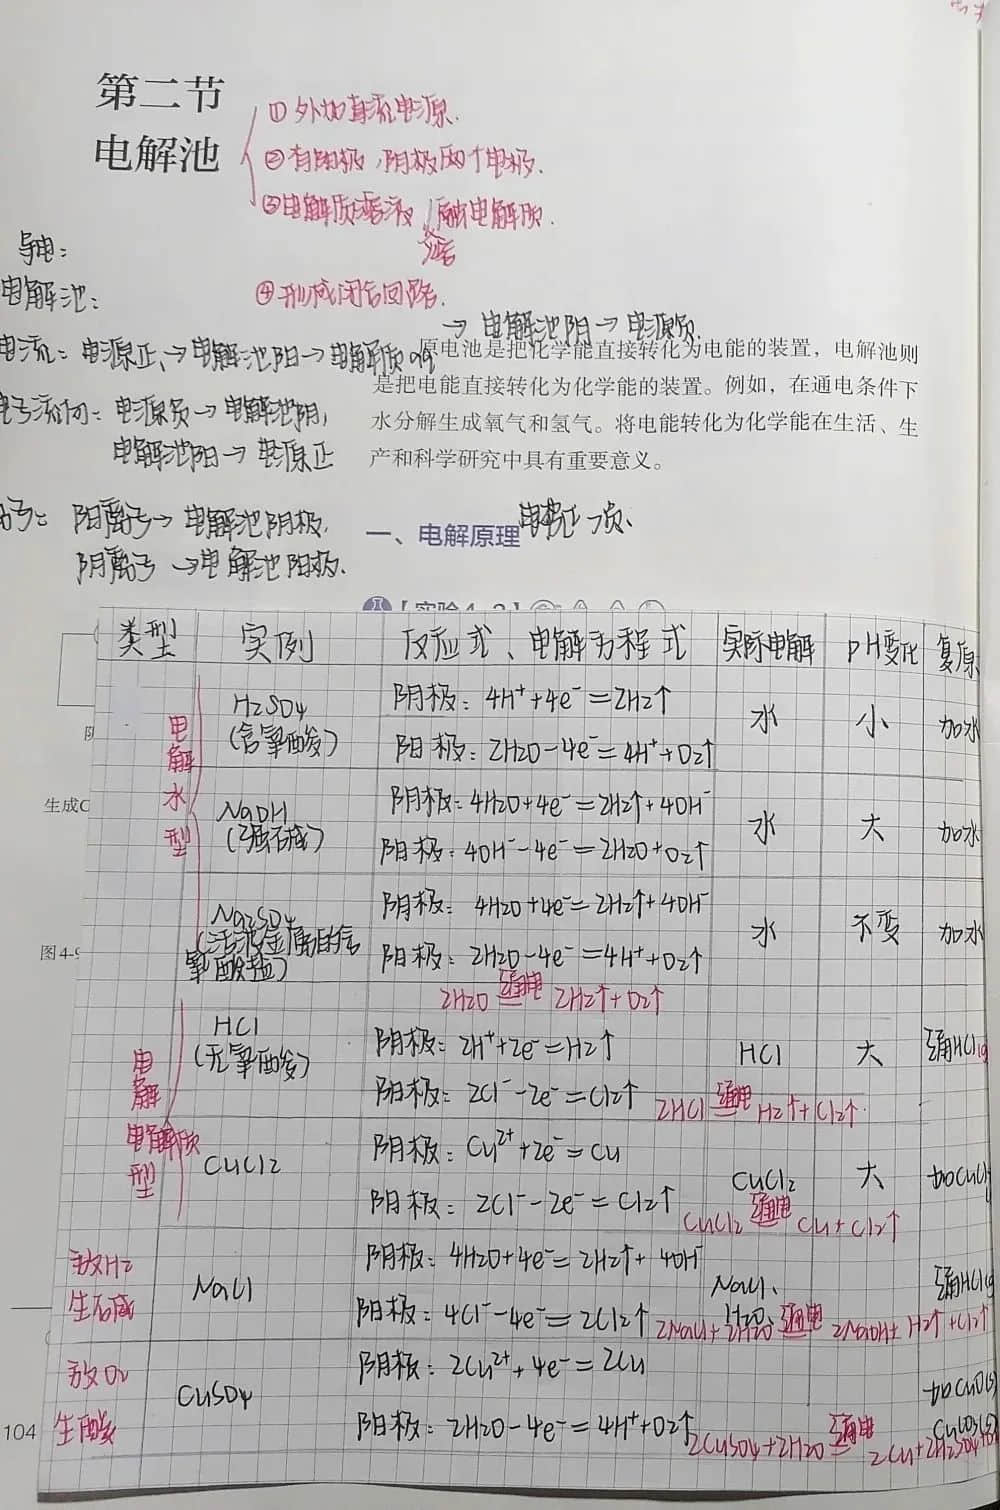 第二节
电解池
①外加直流电源.
②有阳极,阴极两个电极.
③电解质溶液/熔融电解质.
④形成闭合回路.
导电:
电解池:
→电解池阴→电源负
电流:电源正、→电解池阳→电解质
原电池是把化学能直接转化为电能的装置,电解池则
是把电能直接转化为化学能的装置。例如,在通电条件下
水分解生成氧气和氢气。将电能转化为化学能在生活、生
产和科学研究中具有重要意义。
电子流向:电源负→电解池阴,
电解池阳→电源正
阳离子→电解池阴极.
阴离子→电解池阳极.
一、电解原理
类型 实例 反应式、电解方程式 实际电解 pH变化 复原
电解水型
H2SO4
(含氧酸)
阴极:4H⁺+4e⁻=2H2↑
阳极:2H2O-4e⁻=4H⁺+O2↑
水 小 加水
NaOH
(强碱)
阴极:4H2O+4e⁻=2H2↑+4OH⁻
阳极:4OH⁻-4e⁻=2H2O+O2↑
水 大 加水
生成C
Na2SO4
(活泼金属的含
氧酸盐)
阴极:4H2O+4e⁻=2H2↑+4OH⁻
阳极:2H2O-4e⁻=4H⁺+O2↑
2H2O 通电 2H2↑+O2↑
水 不变 加水
图4-9
电解电解质型
HCl
(无氧酸)
阴极:2H⁺+2e⁻=H2↑
阳极:2Cl⁻-2e⁻=Cl2↑
2HCl 通电 H2↑+Cl2↑.
HCl 大 通HCl(g
CuCl2
阴极:Cu²⁺+2e⁻=Cu
阳极:2Cl⁻-2e⁻=Cl2↑
CuCl2 通电 Cu+Cl2↑
CuCl2 大 加CuCl
放H2
生碱
NaCl
阴极:4H2O+4e⁻=2H2↑+4OH⁻
阳极:4Cl⁻-4e⁻=2Cl2↑
NaCl、
H2O
2NaCl+2H2O 通电 2NaOH+H2↑+Cl2↑
通HCl(g
放O2
生酸
CuSO4
阴极:2Cu²⁺+4e⁻=2Cu
阳极:2H2O-4e⁻=4H⁺+O2↑
2CuSO4+2H2O 通电 2Cu+2H2SO4+O2
加CuO(s)
CuCO3(s)
104